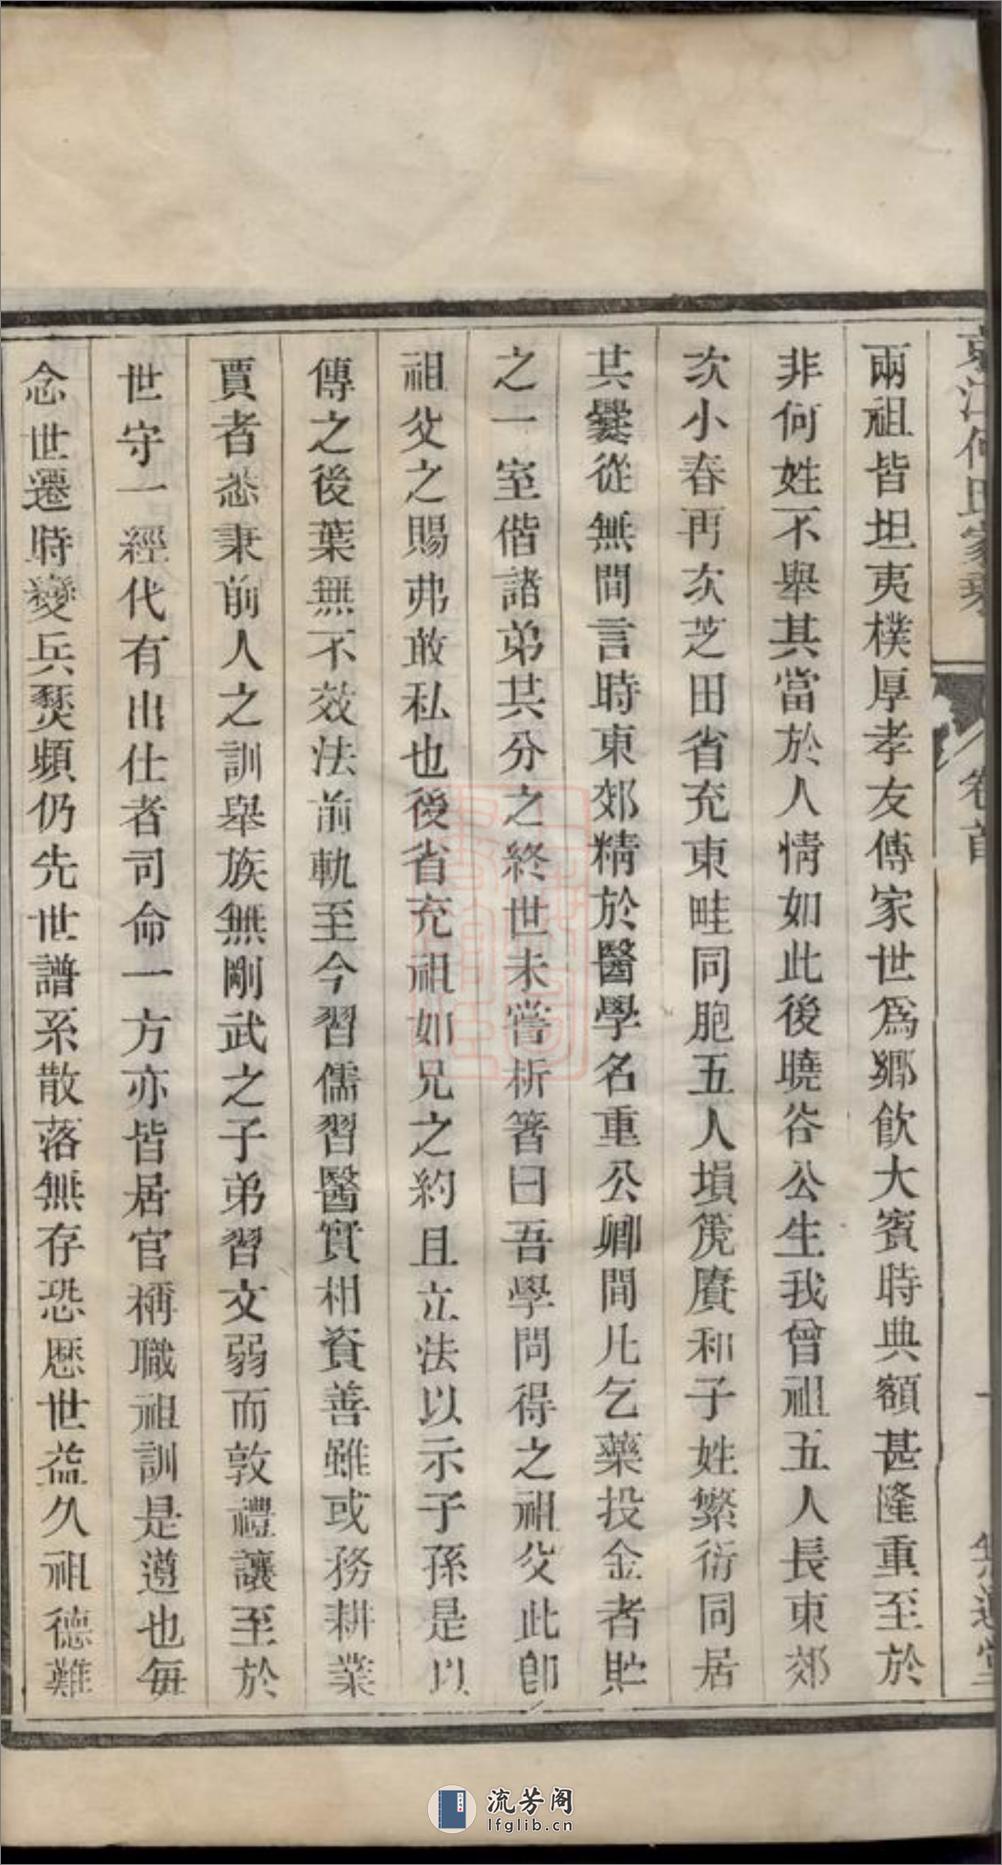 兩祖皆坦夷樸厚孝友傳家世爲鄉飲大賓時典額甚隆重至於
非何姓不舉其當於人情如此後曉谷公生我曾祖五人長東郊
次小春再次芝田省充東畦同胞五人塤箎賡和子姓繁衍同居
共爨從無間言時東郊精於醫學名重公卿間凡乞藥投金者貯
之一室偕諸弟共分之終世未嘗析箸曰吾學問得之祖父此卽
祖父之賜弗敢私也後省充祖如兄之約且立法以示子孫是以
傳之後葉無不效法前軌至今習儒習醫實相資善雖或務耕業
賈者悉秉前人之訓舉族無剛武之子弟習文弱而敦禮讓至於
世守一經代有出仕者司命一方亦皆居官稱職祖訓是遵也每
念世遷時變兵燹頻仍先世譜系散落無存恐歷世益久祖德難
流芳阁
lfglib.cn